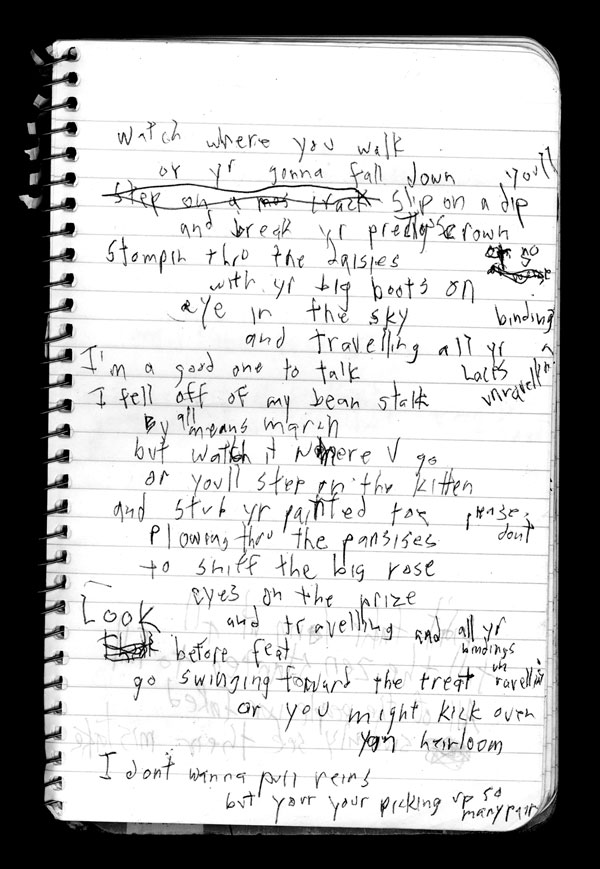 Watch where you walk
or yr gonna fall down you'll
step on a track slip on a dip
and break yr crown
Stompin thro the daisies no
with yr big boots on
eye in the sky binding
and travelling all yr
I'm a good one to talk Lacis
I fell off of my bean stalk unravellin
By all means march
but watch it where V go
or you'll step on the kitten
and stub yr painted toe
plowing thro the pansises dont
to sniff the big rose
eyes on the prize
Look and travelling and all yr
before feat bindings
go swinging forward the treat un ravellin
or you might kick over
heirloom
I dont wanna pull reins
but your your picking up so
many pair